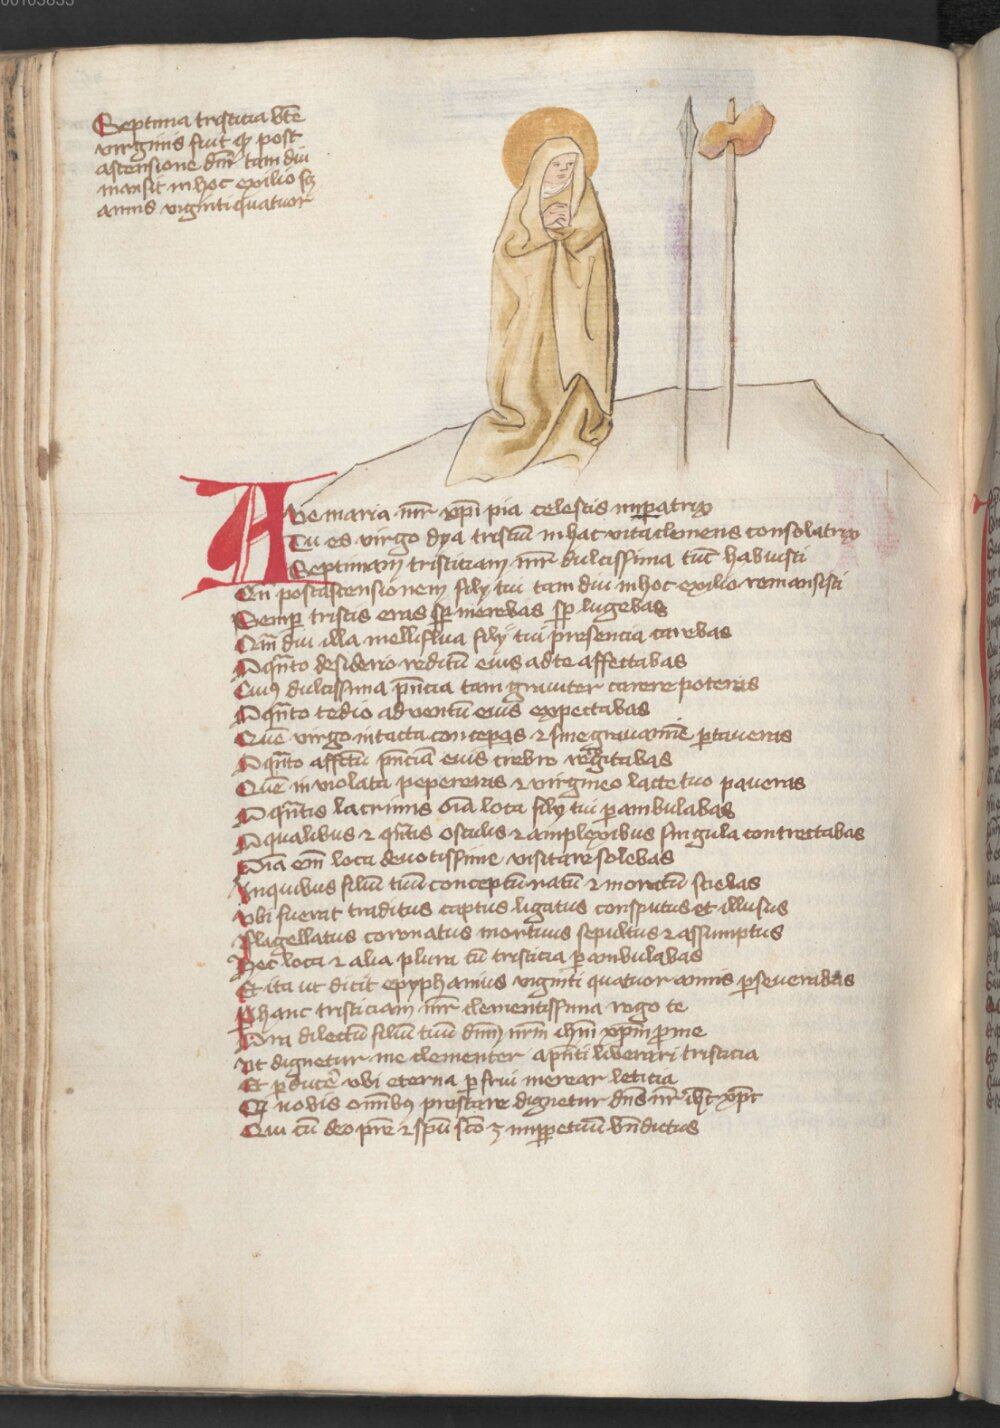 Septima tristicia bte
virginis fuit q post
ascensione dni tam diu
mansit in hoc exilio sz
annis viginti quatuor
Ave maria mr xpi pia celestis impatrix
Tu es virgo dya tristiu in hac vita clemens consolatrix
Septimam tristitiam mr dulcissima tuc habuisti
Cu post ascensionem filij tui tam diu in hoc exilio remansisti
Semp tristis eras sp merebas sp lugebas
Qm diu illa melliflua filij tui presencia carebas
O qnto desiderio reditu eius ad te affectabas
Cui9 dulcissima pncia tam graviter carere poteras
O qnto tedio adventu eius expectabas
Que virgo intacta conceperas 2 sine gravamine portaveras
O qnto affectu pncia eius crebro
Que inviolata pepereras 2 virgineo lacte tuo paveras
O qntis lacrimis oia loca filij tui pambulabas
O qualibus 2 qntis osculis 2 amplexibus singula contrectabas
Oia em loca devotissime visitare solebas
In quibus filiu tuu conceptu natu 2 moratu sciebas
Vbi fuerat traditus captus ligatus consputus et illusus
Flagellatus coronatus mortuus sepultus 2 assumptus
Hec loca 2 alia plura cu tristicia pambulabas
Et ita ut dicit epyphanius viginti quatuor annis pseverabas
P hanc tristiciam mr clementissima rogo te
Ora dilectu filiu tuu dnm nrm ihm xpm p me
Vt dignetur me clementer a pnti liberari tristicia
Et pducere vbi eterna pfrui merear leticia
Q nobis omib9 prestare dignetur dns nr ihc xpc
Qui cu deo pre 2 spu sco z imppetuu bndictus